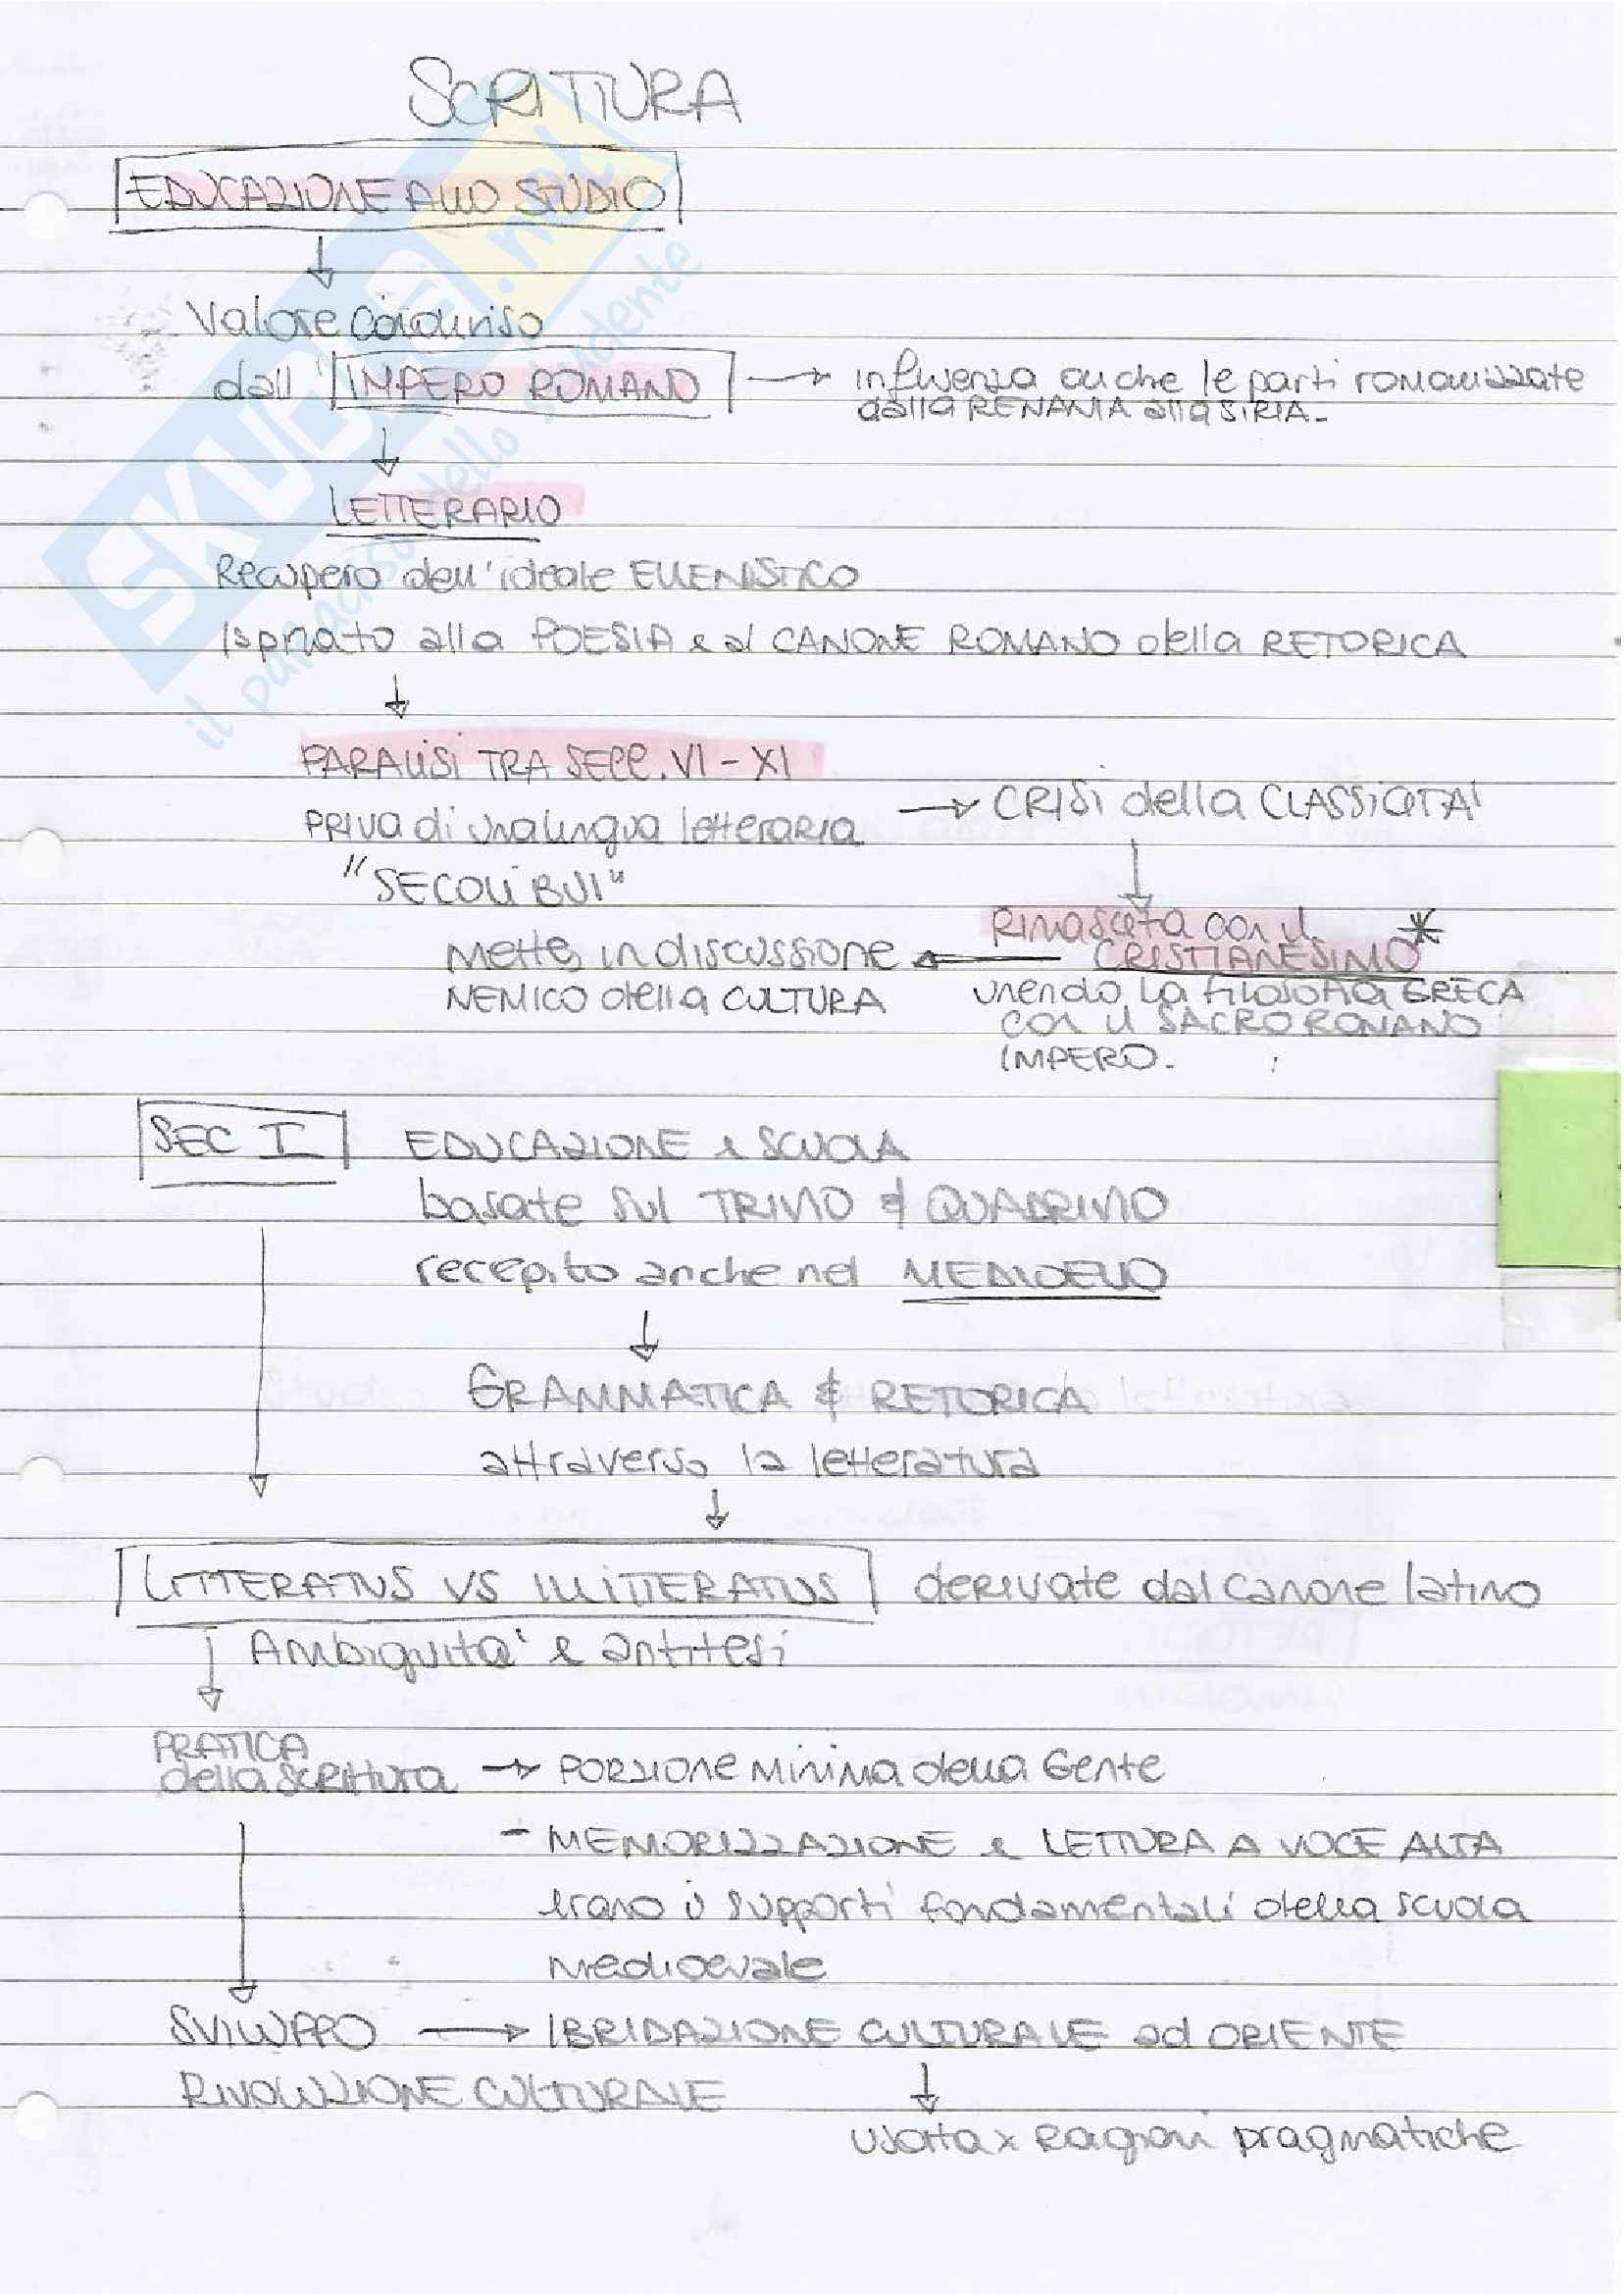 SCRITTURA
EDUCAZIONE ALLO STUDIO
Valore condiviso
dall' IMPERO ROMANO → influenza anche le parti romanizzate
dalla RENANIA alla SIRIA.
LETTERARIO
Recupero dell'ideale ELLENISTICO
Ispirato alla POESIA e al CANONE ROMANO della RETORICA
PARALISI TRA SECC. VI - XI
→ CRISI della CLASSICITA'
PRIVA di una lingua letteraria
"SECOLI BUI"
Rinascita con il *
CRISTIANESIMO
Mette in discussione
NEMICO della CULTURA
unendo la filosofia GRECA
con il SACRO ROMANO
IMPERO.
SEC I EDUCAZIONE e SCUOLA
basate sul TRIVIO & QUADRIVIO
recepito anche nel MEDIOEVO
GRAMMATICA & RETORICA
attraverso la letteratura
LITTERATUS VS ILLITTERATUS derivate dal canone latino
Ambiguita' e antitesi
PRATICA
della scrittura → PORZIONE Minima della Gente
- MEMORIZZAZIONE e LETTURA A VOCE ALTA
erano i supporti fondamentali della scuola
medioevale
SVILUPPO → IBRIDAZIONE CULTURALE ad ORIENTE
RIVOLUZIONE CULTURALE
usata x Ragioni pragmatiche
SKUOLA.net
il paradiso dello studente